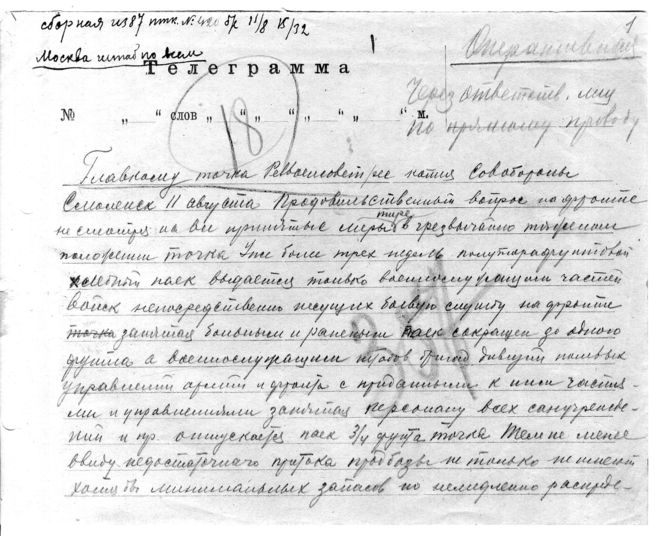 сборная из 87 птк. № 420 бк 11/8 15/32
1
Москва штаб по всем
Оперативная
Телеграмма
Через ответств. лиц
№ „ “ слов „ “ „ “ „ “ м.
по прямому проводу
18
Главкому точка Реввоенсовет рес копия Совобороны
Смоленск 11 августа Продовольственный вопрос на фронте
не смотря на все принятые меры тире в чрезвычайно тяжелом
положении точка Уже более трех недель полуторафунтовой
хлебный паек выдается только военнослужащим частей
войск непосредственно несущих боевую службу на фронте
точка запятая больным и раненым паек сокращен до одного
фунта а военнослужащим штабов бригад дивизий полевых
управлений армий и фронта с приданными к ним частя-
ми и управлениями запятая персоналу всех санучрежде-
ний и пр. отпускается паек 3/4 фунта точка Тем не менее
ввиду недостаточного притока продбазы не только не имеют
хотя бы минимальных запасов но немедленно распреде-